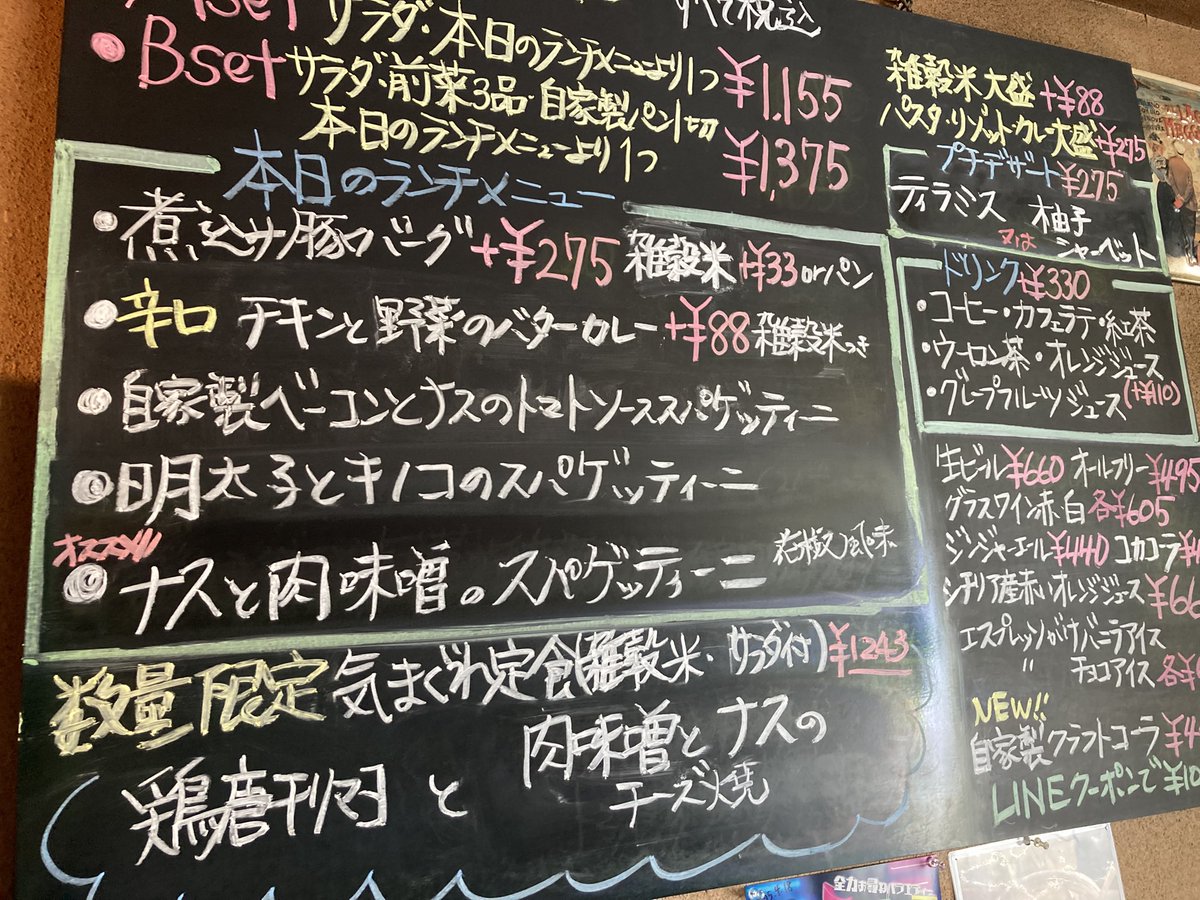 Aset サラダ・本日のランチメニューより1つ ¥1,155
すべて税込
Bset サラダ・前菜3品・自家製パン1切
本日のランチメニューより1つ ¥1,375
本日のランチメニュー
・煮込み豚バーグ +¥275 雑穀米+¥33 orパン
・辛口 チキンと野菜のバターカレー +¥88 雑穀米つき
・自家製ベーコンとナスのトマトソーススパゲッティーニ
・明太子とキノコのスパゲッティーニ
オススメ!!
・ナスと肉味噌のスパゲッティーニ 花椒風味
数量限定 気まぐれ定食(雑穀米・サラダ付) ¥1243
鶏唐 と 肉味噌とナスの
チーズ焼
雑穀米大盛+¥88
パスタ・リゾット・カレー大盛+¥275
プチデザート¥275
ティラミス 又は 柚子
シャーベット
ドリンク+¥330
・コーヒー・カフェラテ・紅茶
・ウーロン茶・オレンジジュース
・グレープフルーツジュース(+¥110)
生ビール¥660 オールフリー¥495
グラスワイン赤・白 各¥605
ジンジャーエール¥440 コカコーラ
シチリア産赤いオレンジジュース
エスプレッソがけバニラアイス
〃 チョコアイス 各
NEW!!
自家製クラフトコーラ
LINEクーポンで